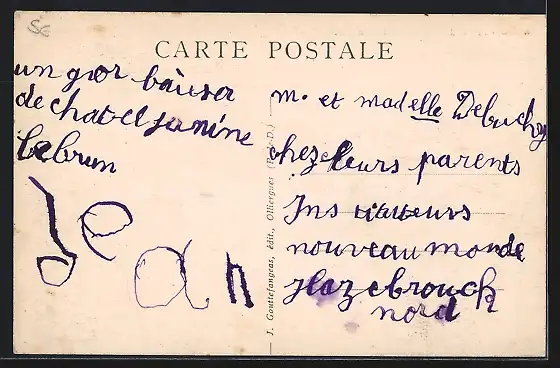 CARTE POSTALE
un gros baiser
de chatel janine
lebrun
Jean
J. Gouttefangeas, édit., Olliergues (P.-d.-D.)
M. et Madelle Debuchy
chez leurs parents
Instituteurs
nouveau monde
Hazebrouck
nord